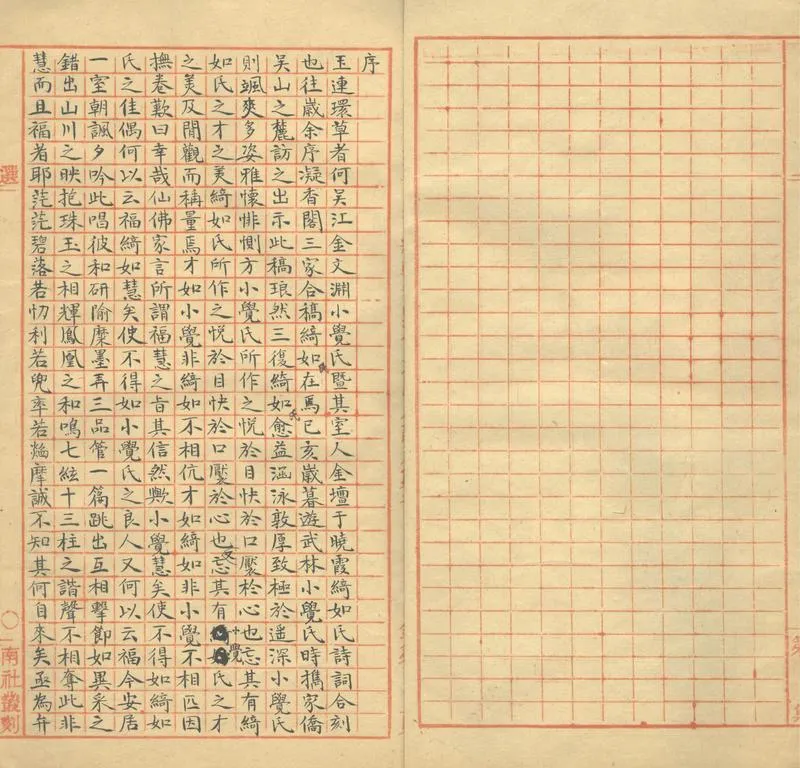 序
玉連環草者何吳江金文淵小覺氏暨其室人金壇于曉霞綺如氏詩詞合刻
也往歲余序凝香閣三家合稿綺如氏在焉已亥歲暮遊武林小覺氏時攜家僑
吳山之麓訪之出示此稿琅然三復綺如氏愈益涵泳敦厚致極於遥深小覺氏
則颯爽多姿雅懷悱惻方小覺氏所作之悅於目快於口饜於心也忘其有綺
如氏之才之美綺如氏所作之悅於目快於口饜於心也又忘其有小覺氏之才
之美及閒觀而稱量焉才如小覺非綺如不相伉才如綺如非小覺不相匹因
撫卷歎曰幸哉仙佛家言所謂福慧之旨其信然歟小覺慧矣使不得如綺如
氏之佳偶何以云福綺如慧矣使不得如小覺氏之良人又何以云福今安居
一室朝諷夕吟此唱彼和研隃糜墨弄三品管一篇跳出互相擊節如異采之
錯出山川之映抱珠玉之相輝鳳凰之和鳴七絃十三柱之諧聲不相奪此非
慧而且福者耶茫茫碧落若忉利若兜率若燄摩誠不知其何自來矣亟為弁
選
〇
南社叢刻